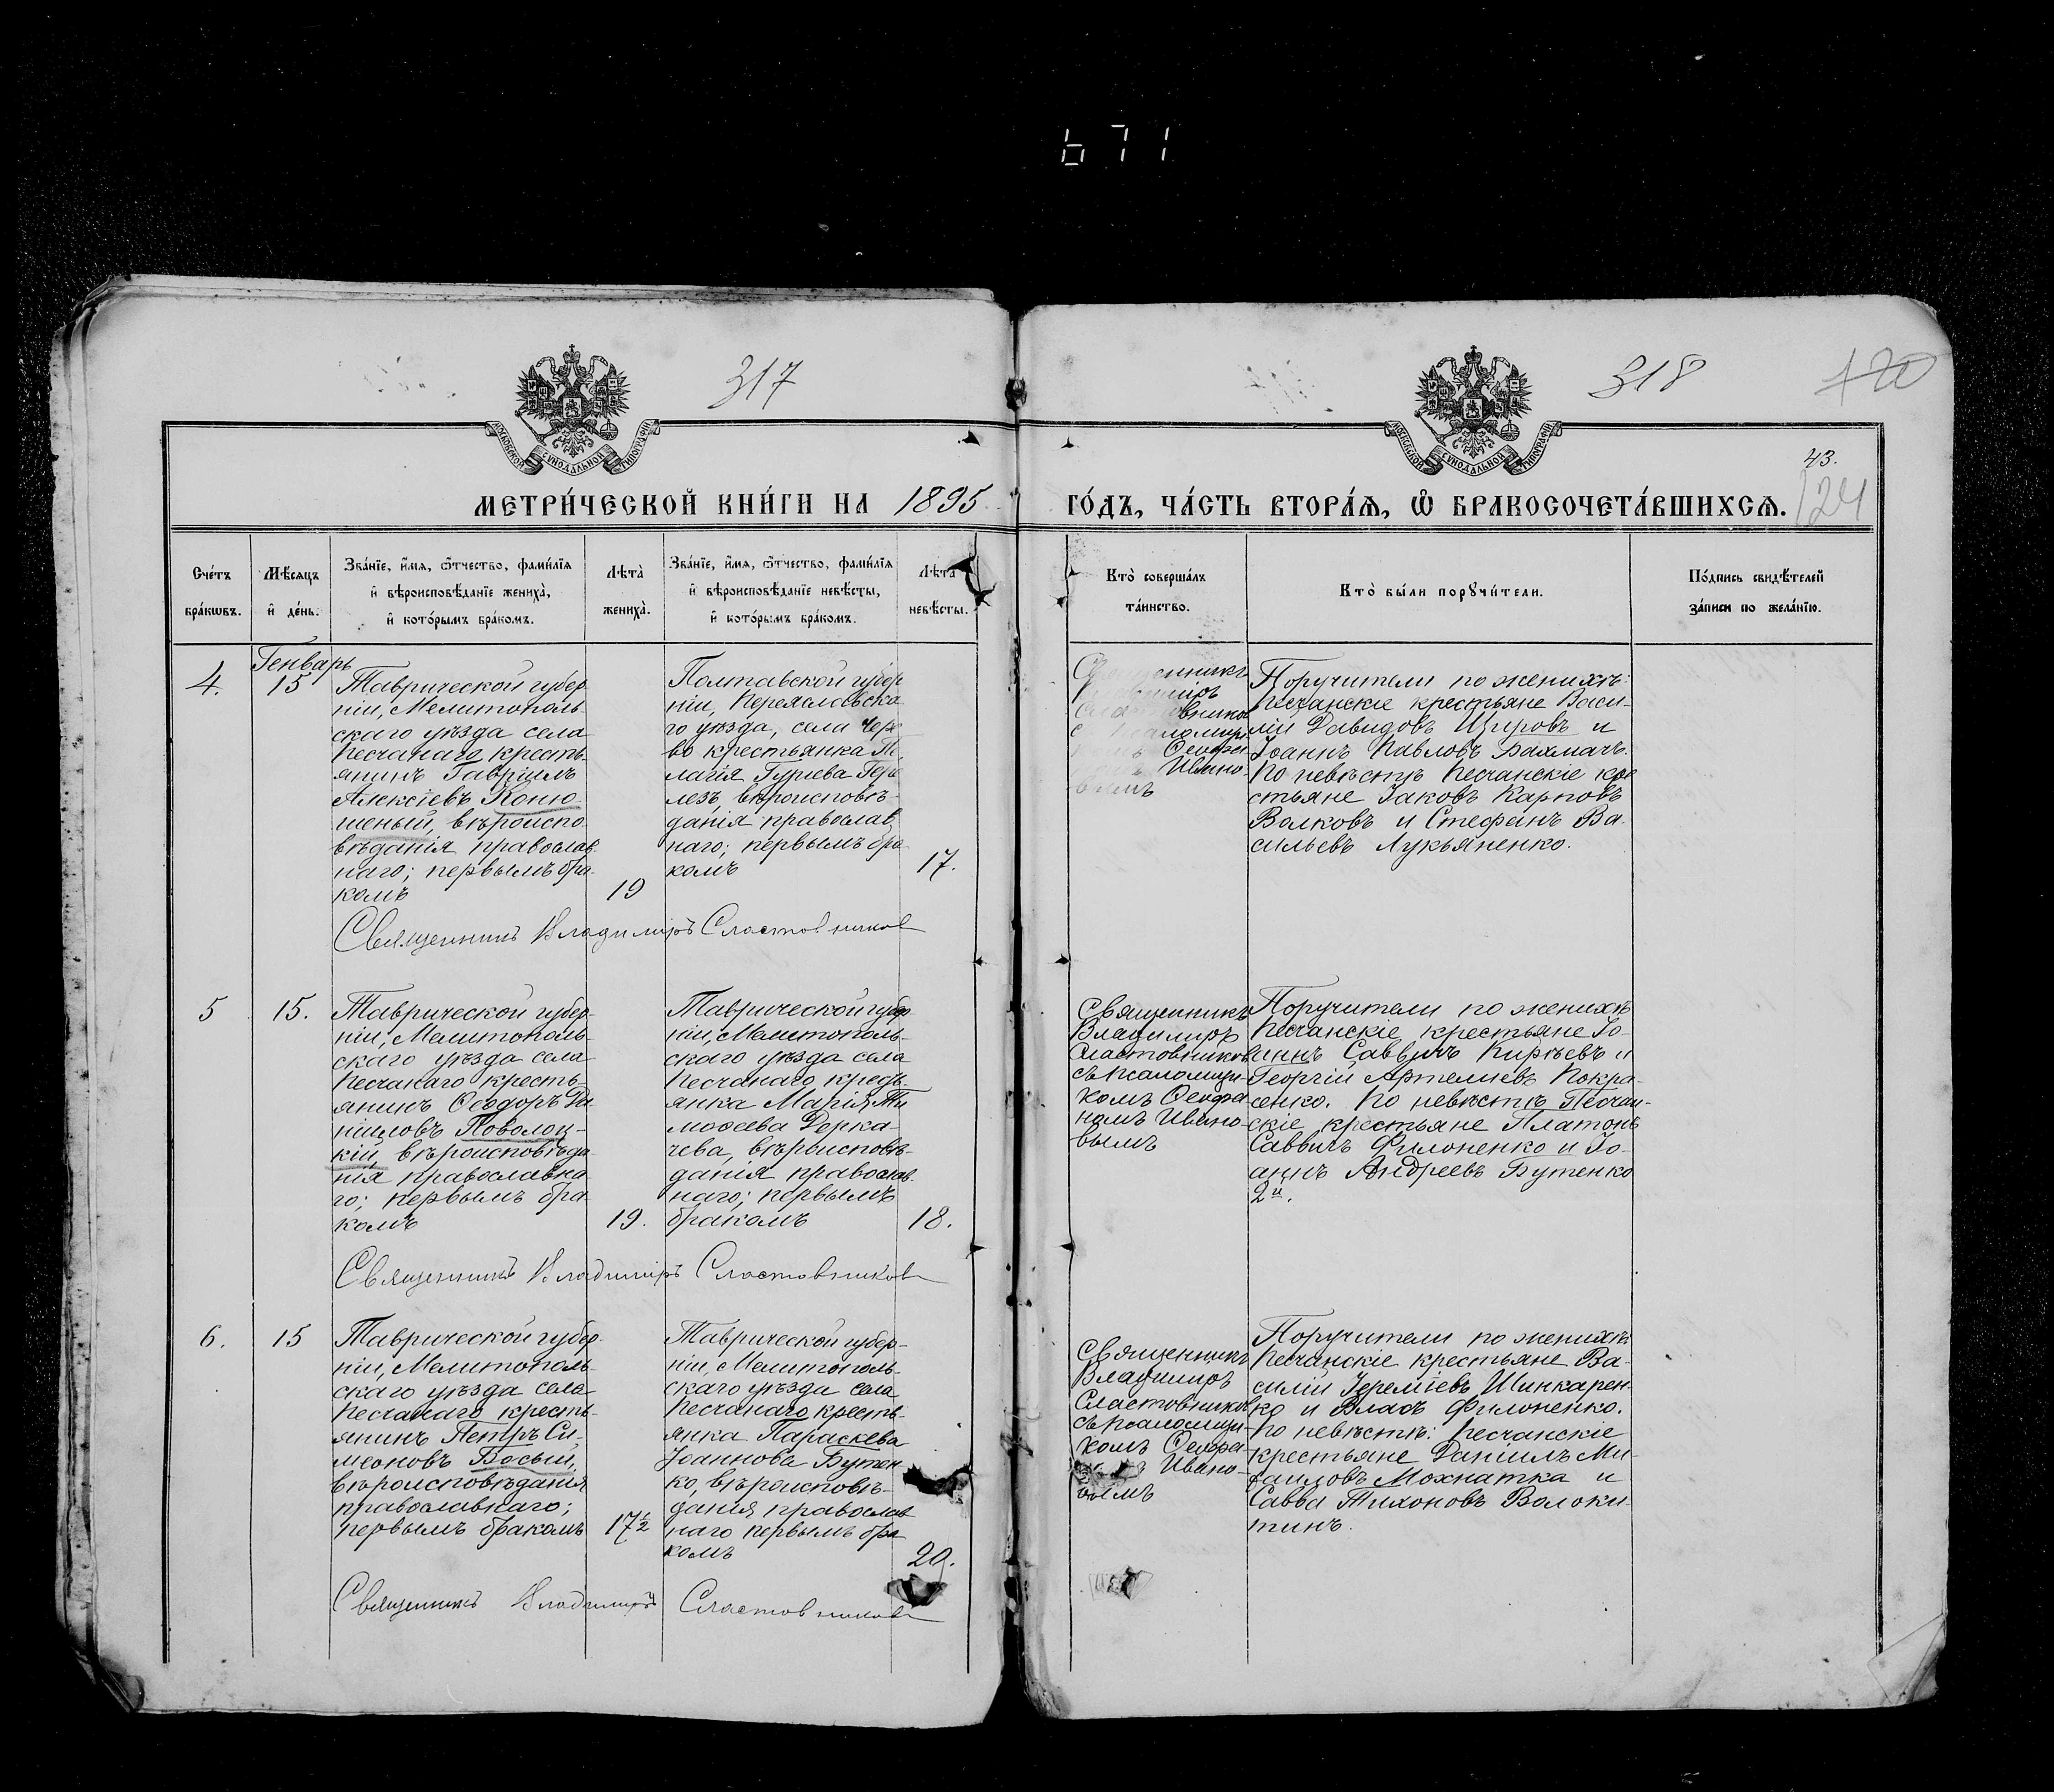 671
317
318
120
МОСКОВСКОЙ СѴНОДАЛЬНОЙ ТИПОГРАФІИ
МОСКОВСКОЙ СѴНОДАЛЬНОЙ ТИПОГРАФІИ
43.
124
МЕТРИ́ЧЕСКОЙ КНИ́ГИ НА 1895 ГО́ДЪ, ЧА́СТЬ ВТОРА́Я, Ѽ БРАКОСОЧЕТА́ВШИХСЯ.
Сче́тъ бра́кѡвъ.
Мѣ́сяцъ и҆ де́нь.
Зва́нїе, и҆́мя, ѻ҆́тчество, фами́лїя и҆ вѣроисповѣ́данїе жениха̀, и҆ кото́рымъ бра́комъ.
Лѣта̀ жениха̀.
Зва́нїе, и҆́мя, ѻ҆́тчество, фами́лїя и҆ вѣроисповѣ́данїе невѣ́сты, и҆ кото́рымъ бра́комъ.
Лѣта̀ невѣ́сты.
Кто̀ соверша́лъ та́инство.
Кто̀ бы́ли порꙋчи́тели.
По́дпись свидѣ́телей за́писи по жела́нїю.
4.
Генварь
15
Таврической губер-
ніи, Мелитополь-
скаго уѣзда села
Песчанаго кресть-
янинъ Гавріилъ
Алексіевъ Коню
шеный, вѣроиспо-
вѣданія православ-
наго; первымъ бра-
комъ
19
Полтавской губер
ніи, Переяславска
го уѣзда, села
во крестьянка
лагія Гуріева
лезъ, вѣроисповѣ-
данія православ
наго; первымъ бра-
комъ
17.
Поручители по женихѣ:
Песчанскіе крестьяне Васи-
лій Давидовъ Щировъ и
Іоаннъ Павловъ Бахмачъ.
По невѣстѣ Песчанскіе кре
стьяне Іаковъ Карповъ
Волковъ и Стефанъ Ва-
сильевъ Лукьяненко.
Священникъ Владиміръ Сластовников
5
15.
Таврической губер-
ніи, Мелитополь-
скаго уѣзда села
Песчанаго кресть-
янинъ Ѳеодоръ Да-
ніиловъ Поволоц-
кій, вѣроисповѣда
нія православна
го; первымъ бра
комъ
19.
Таврической губер
ніи, Мелитополь-
скаго уѣзда села
Песчанаго кресть-
янка Марія Ти
моѳеева Дерка-
чева, вѣроисповѣ-
данія православ.
наго; первымъ
бракомъ
18.
Священникъ
Владимиръ
Сластовников
съ псаломщи-
комъ
Ивано-
вымъ
Поручители по женихѣ
Песчанскіе крестьяне Іо-
аннъ Саввичъ Кирѣевъ и
Георгій Артемиевъ Покра-
сенко. По невѣстѣ Песчан-
скіе крестьяне Платонъ
Саввичъ Филоненко и Іо-
аннъ Андреевъ Бутенко
2й.
Священникъ Владиміръ Сластовников
6.
15
Таврической губер-
ніи, Мелитополь-
скаго уѣзда села
Песчанаго кресть-
янинъ Петръ Си-
меоновъ Босый,
вѣроисповѣданія
православнаго;
первымъ бракомъ
17½
Таврической губер-
ніи, Мелитополь-
скаго уѣзда села
Песчанаго кресть-
янка Параскева
Іоаннова Бутен
ко, вѣроисповѣ-
данія православ
наго первымъ бра
комъ
20.
Священникъ
Владимиръ
Сластовников
съ псаломщи-
комъ
Ивано-
вымъ
Поручители по женихѣ
Песчанскіе крестьяне Ва-
силій Іереміевъ Шинкарен-
ко и Власъ Филоненко.
По невѣстѣ: Песчанскіе
крестьяне Даніилъ Ми-
хаиловъ Мохнатка и
Савва Тихоновъ Волоки-
тинъ.
Священникъ Владиміръ Сластовников